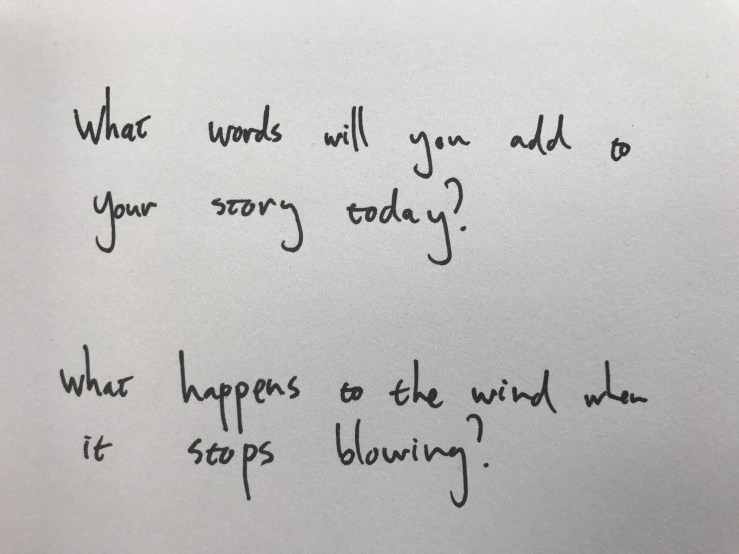 What words will you add to
your story today?
what happens to the wind when
it stops blowing?